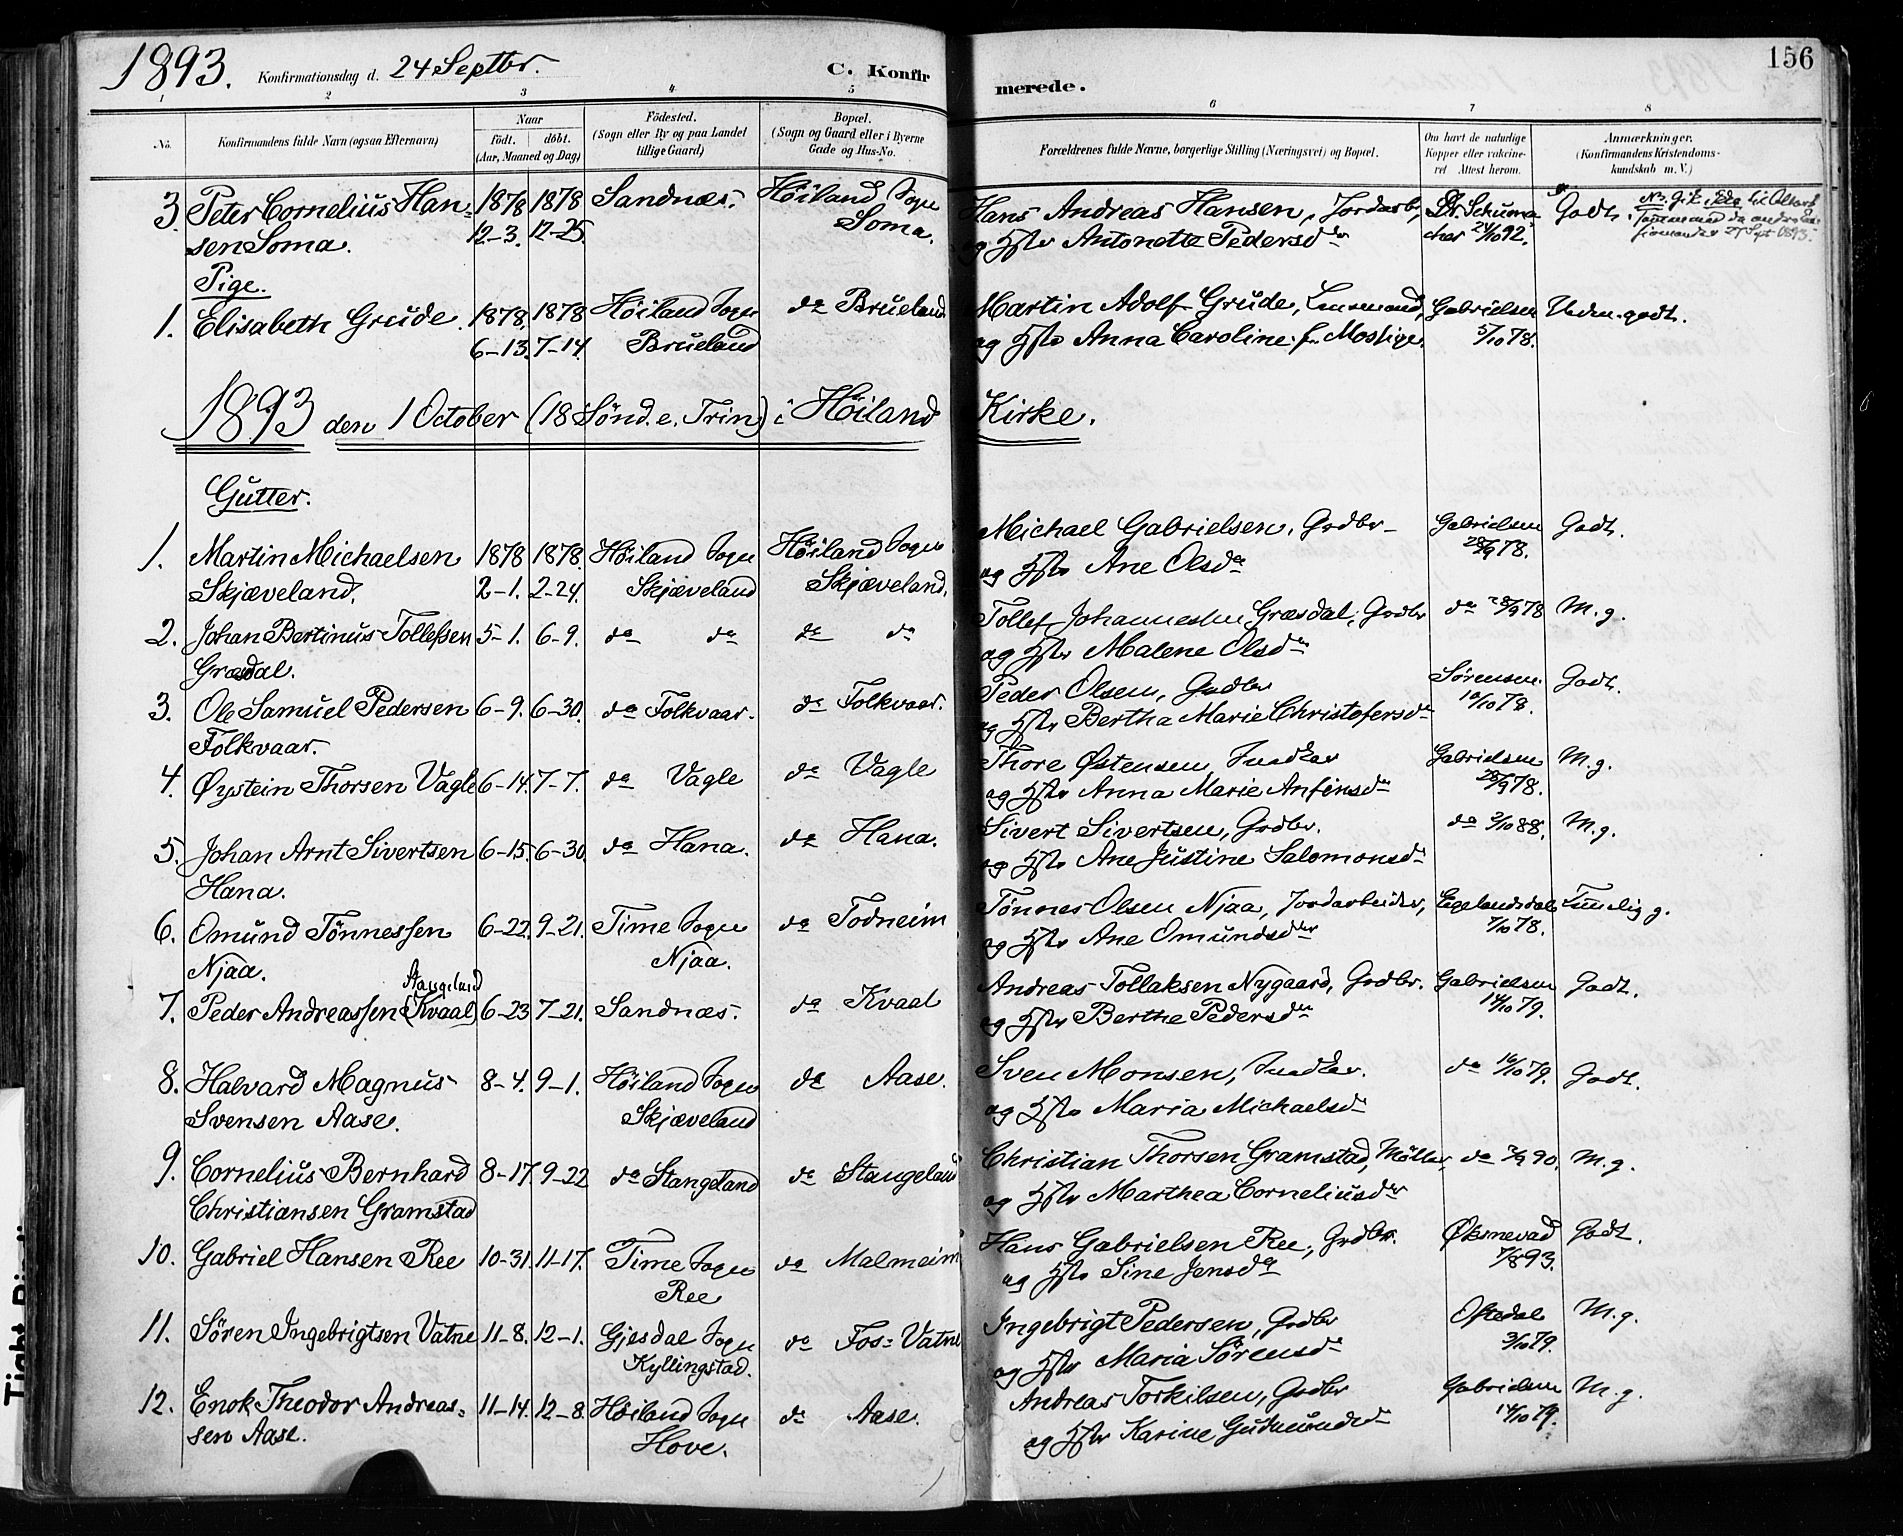 1893. Konfirmationsdag d. 24 Septbr. C. Konfir merede. 156
1 2 3 4 5 6 7 8
No. Konfirmandens fulde Navn (ogsaa Efternavn) Naar födt. döbt. (Aar, Maaned og Dag) Födested. (Sogn eller By og paa Landet tillige Gaard) Bopæl. (Sogn og Gaard eller i Byerne Gade og Hus-No. Forældrenes fulde Navne, borgerlige Stilling (Næringsvei) og Bopæl. Om havt de naturlige Kopper eller vakcineret Attest herom. Anmærkninger. (Konfirmandens Kristendomskundskab m. V.)
3 Peter Cornelius Han= 1878 1878 Sandnæs. Höiland Sogn Hans Andreas Hansen, Jordarb, Dr. Schuma Godt.
sen Soma. 12-3. 12-25. Soma. og Hstr Antonette Pedersdr cher 24/10 92.
Pige.
1. Elisabeth Grude. 1878. 1878 Höiland Sogn do Brueland Martin Adolf Grude, Lensmand, Gabrielsen Udm. godt.
6-13. 7-14. Brueland og Hstr Anna Caroline f. Mossige. 5/10 78.
1893 den 1 October (18 Sönd. e. Trin) i Höiland Kirke.
Gutter.
1. Martin Michaelsen 1878 1878. Höiland Sogn Höiland Sogn Michael Gabrielsen, Grdbr Gabrielsen Godt.
Skjæveland. 2-1. 2-24. Skjæveland Skjæveland. og Hstr Ane Olsdr 28/9 78.
2. Johan Bertinus Tollefsen 5-1. 6-9. do do do do Tollef Johannessen Græsdal, Grdbr do 28/9 78 M. g.
Græsdal. og Hstr Malene Olsdr
3. Ole Samuel Pedersen 6-9. 6-30. do Folkvaar. do Folkvaar. Peder Olsen, Grdbr Sörensen Godt.
Folkvaar. og Hstr Bertha Marie Christofersdr 10/10 78.
4. Øystein Thorsen Vagle 6-14. 7-7. do Vagle do Vagle Thore Østensen Gabrielsen M. g.
og Hstr Anna Marie Anfinsdr 28/9 78.
5. Johan Arnt Sivertsen 6-15. 6-30. do Hana. do Hana. Sivert Sivertsen, Grdbr. do M. g.
Hana. og Hstr Ane Justine Salomonsdr
6. Omund Tönnessen 6-22. 9-21. Time Sogn do Todneim Tönnes Olsen Njaa, Jordarbeider, Egelandsdal Temelig g.
Njaa. Njaa. og Hstr Ane Omundsdr 7/10 78.
Stangeland
7. Peder Andreassen (Kvaal) 6-23 7-21. Sandnæs. do Kvaal Andreas Tollaksen Nygaard, Grdbr. Gabrielsen Godt.
og Hstr Berthe Pedersdr 14/10 79.
8. Halvard Magnus 8-4. 9-1. Höiland Sogn do Aase. Sven Monsen, do 16/10 79. Godt.
Svensen Aase. Skjæveland og Hstr Maria Michaelsdr
9. Cornelius Bernhard 8-17. 9-22 do Stangeland do Stangeland Christian Thorsen Gramstad, Möller do 90. M. g.
Christiansen Gramstad og Hstr Marthea Corneliusdr
10. Gabriel Hansen Ree 10-31. 11-17. Time Sogn do Malmeim Hans Gabrielsen Ree, Grdbr. Øksnevad Godt.
Ree og Hstr Sine Jensdr 7/8 93.
11. Sören Ingebrigtsen Vatne 11-8. 12-1. Gjesdal Sogn do Fos=Vatne Ingebrigt Pedersen, Grdbr Oftedal M. g.
Kyllingstad. og Hstr Maria Sörensdr 3/10 79.
12. Enok Theodor Andreas= 11-14. 12-8. Höiland Sogn do Aase. Andreas Torkilsen, Grdbr Gabrielsen M. g.
sen Aase. Hove. og Hstr Karine Gudmundsdr 14/10 79.